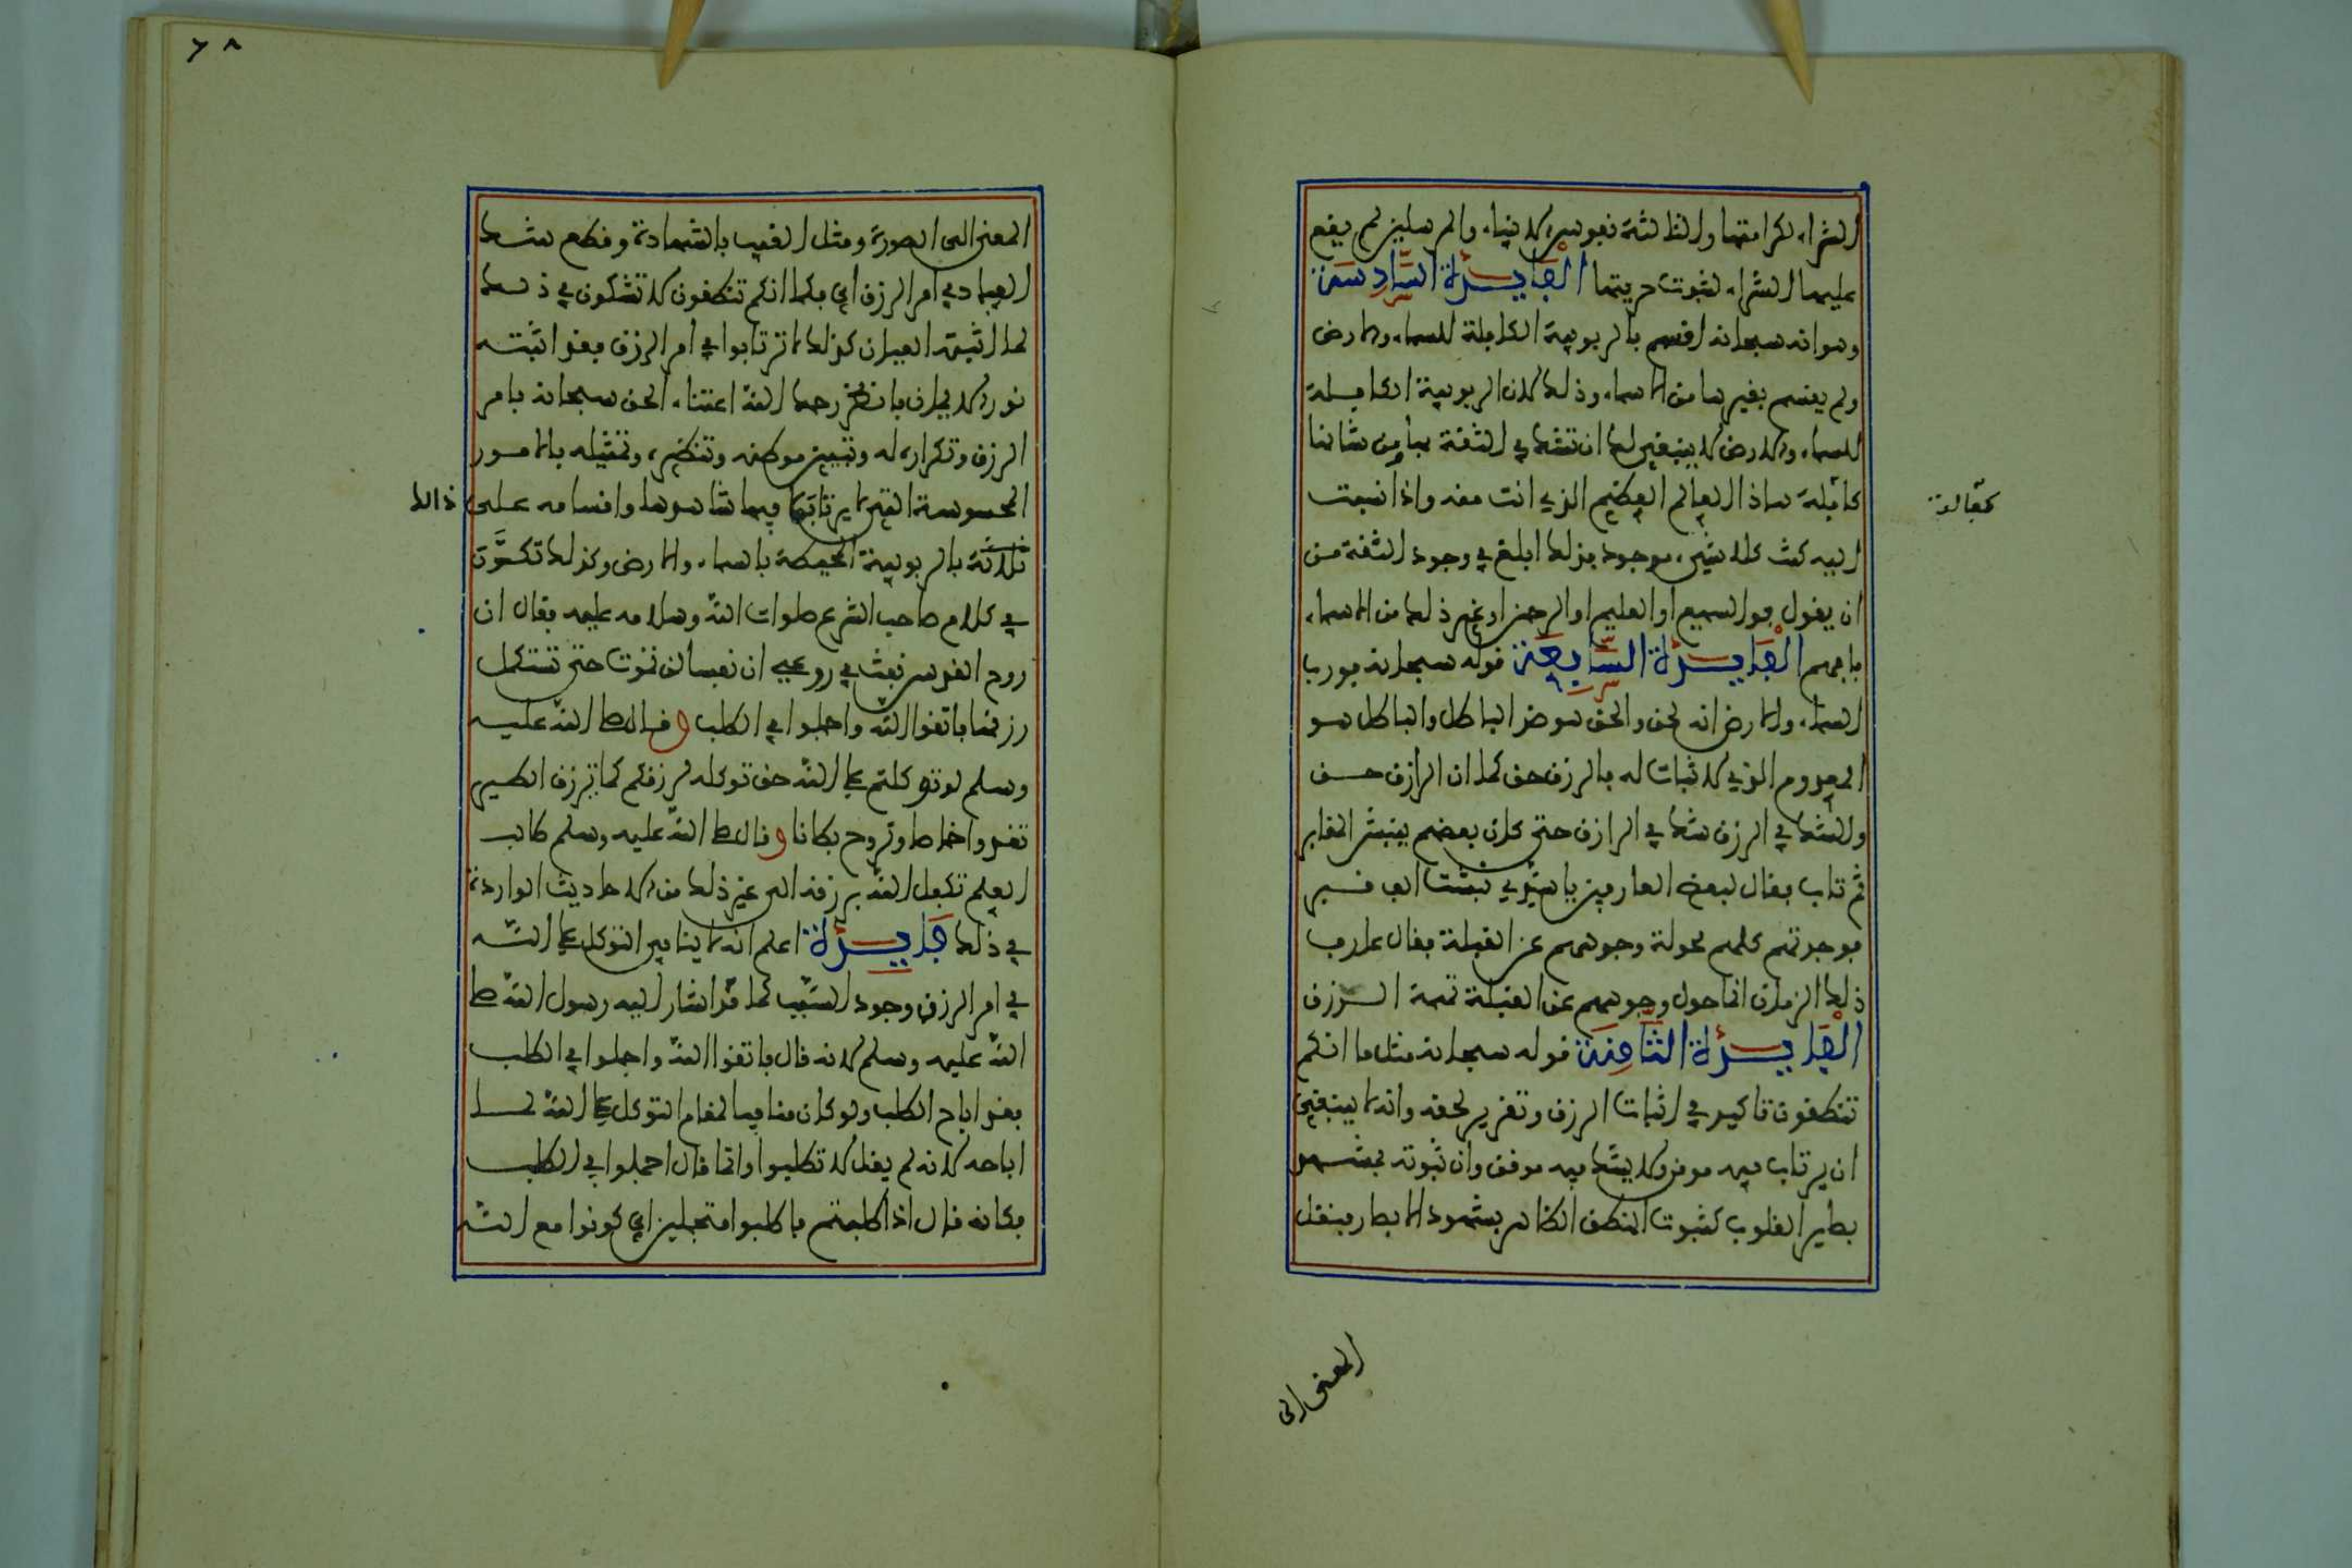 الشراء لكرامتها والثالثة نفوس الانبياء والمرسلين لم يقع
عليها الشراء لثبوت حريتها الفايدة السادسة
وهو انه سبحانه اقسم بالربوبية الكاملة للسماء والارض
ولم يقسم بغيرها من الاسماء وذلك لان الربوبية الكاملة
للسماء والارض لا ينبغي لك ان تشك في الثقة بها من شاننا
كافلة هاذا العالم العظيم الذي انت منه واذا نسبت
كفالة
اليه كنت كلا شيء موجود بذلك ابلغ في وجود الثقة من
ان يقول فو السميع او العليم او الرحمن او غير ذلك من الاسماء
فافهم الفايدة السابعة قوله سبحانه فورب
السماء والارض انه لحق والحق هو ضد الباطل والباطل هو
المعدوم الذي لا ثبات له فالرزق حق كما ان الرازق حق
والشك في الرزق شك في الرازق حتى كان بعضهم ينبش المقابر
ثم تاب فقال لبعض العارفين يا سيدي نبشت الف قبر
فوجدتهم كلهم محولة وجوههم عن القبلة فقال عارف
ذلك الزمان انما حول وجوههم عن القبلة تهمة الرزق
الفايدة الثامنة قوله سبحانه مثل ما انكم
تنطقون تاكيد في اثبات الرزق وتقرير لحقه وانه لا ينبغي
ان يرتاب فيه موقن ولا يشك فيه موفق وان ثبوته بمشهد
بصاير القلوب كثبوت المنطق الظاهر بشهود الابصار فنقل
المعنى الى
٦٨
المعنى الى الصورة ومثل الغيب بالشهادة وقطع شك
العباد في امر الرزق اي فكما انكم تنطقون لا تشكون في ذلك
لما اثبته العيان كذلك لا ترتابوا في امر الرزق فقد اثبته
نور الايمان فانظر رحمك الله اعتناء الحق سبحانه بامر
الرزق وتكراره له وتبيين موطنه وتنظيره وتمثيله بالامور
المحسوسة التي لا يرتاب فيها شاهدها واقسامه على ذالك
ثلاثة بالربوبية المحيطة بالسماء والارض وكذلك تكرر
في كلام صاحب الشرع صلوات الله وسلامه عليه فقال ان
روح القدس نفث في روعي ان نفسا لن تموت حتى تستكمل
رزقها فاتقوا الله واجملوا في الطلب وقال صلى الله عليه
وسلم لو توكلتم على الله حق توكله لرزقكم كما يرزق الطير
تغدوا خماصا وتروح بطانا وقال صلى الله عليه وسلم طالب
العلم تكفل الله برزقه الى غير ذلك من الاحاديث الواردة
في ذلك فايدة اعلم انه لا ينافي التوكل على الله
في امر الرزق وجود السبب كما قد اشار اليه رسول الله صلى
الله عليه وسلم لانه قال فاتقوا الله واجملوا في الطلب
فقد اباح الطلب ولو كان منافيا لمقام التوكل على الله لما
اباحه لانه لم يقل لا تطلبوا وانما قال اجملوا في الطلب
فكانه قال اذا طلبتم فاطلبوا متجملين اي كونوا مع الله